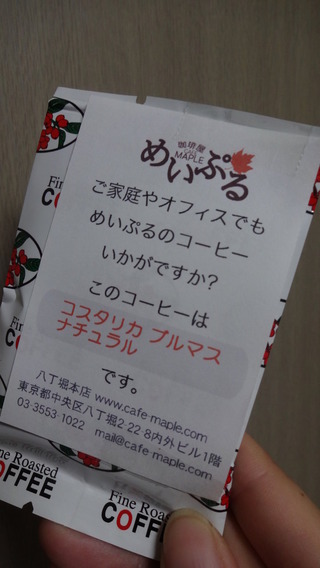 珈琲屋
CAFE MAPLE
めいぷる
ご家庭やオフィスでも
めいぷるのコーヒー
いかがですか?
このコーヒーは
コスタリカ ブルマス
ナチュラル
です。
八丁堀本店 www.cafe-maple.com
東京都中央区八丁堀2-22-8内外ビル1階
03-3553-1022 mail@cafe-maple.com
Fine Roasted
COFFEE
Fine Roasted
COFFEE